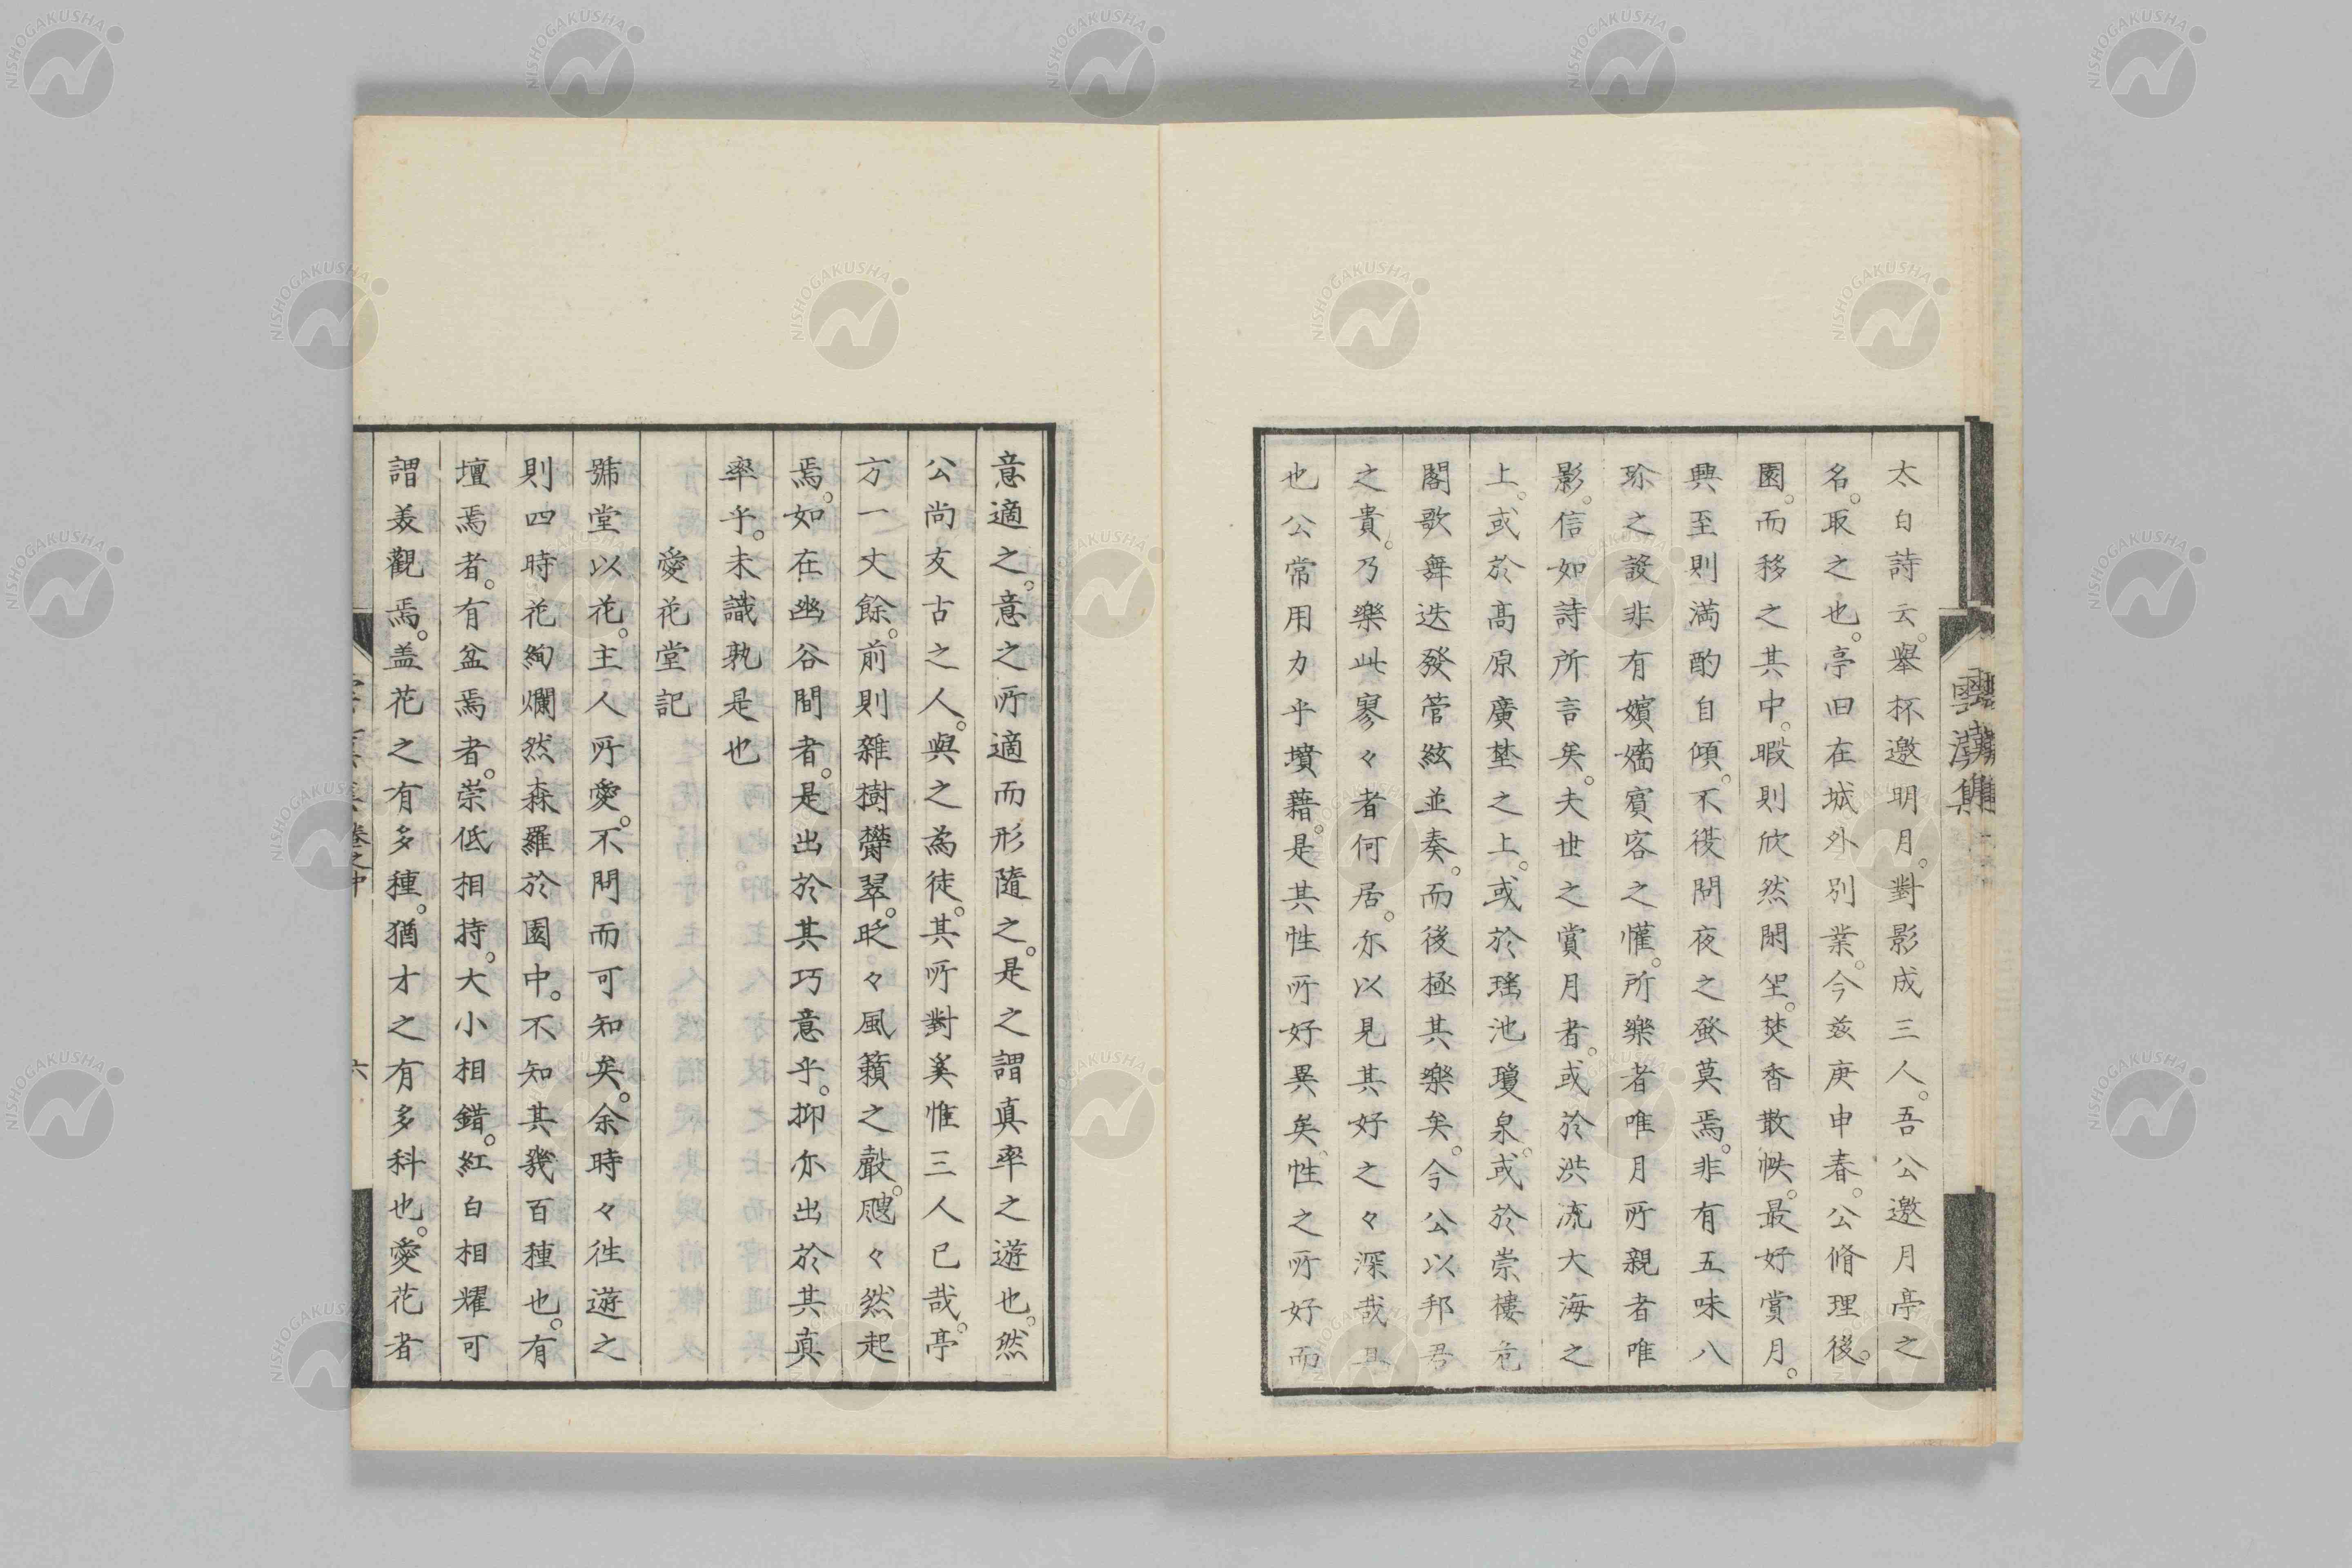 太白詩云。擧杯邀明月。對影成三人。吾公邀月亭之
名。取之也。亭旧在城外別業。今玆庚申春。公脩理後
園。而移之其中。暇則欣然閑坐。焚香散帙。最好賞月。
興至則満酌自傾。不復問夜之蚤莫焉。非有五味八
珎之設非有嬪嬙賓客之懽。所樂者唯月所親者唯
影。信如詩所言矣。夫世之賞月者。或於洪流大海之
上。或於高原廣埜之上。或於瑤池瓊泉。或於崇樓危
閣歌舞迭發管絃並奏。而後極其樂矣。今公以邦君
之貴。乃樂此寥々者何居。亦以見其好之々深哉且
也公常用力乎墳藉。是其性所好異矣。性之所好而
意適之。意之所適而形隨之。是之謂真率之遊也。然
公尚友古之人。與之為徒。其所對奚惟三人已哉。亭
方一丈餘。前則雜樹欝翠。眨々風籟之聲。颼々然起
焉。如在幽谷間者。是出於其巧意乎。抑亦出於其真
率乎。未識孰是也
愛花堂記
號堂以花。主人所愛。不問而可知矣。余時々徃遊之
則四時花絢爛然森羅於園中。不知其幾百種也。有
壇焉者。有盆焉者。崇低相持。大小相錯。紅白相耀可
謂美觀焉。盖花之有多種。猶才之有多科也。愛花者
卷之中
六
NISHOGAKUSHA